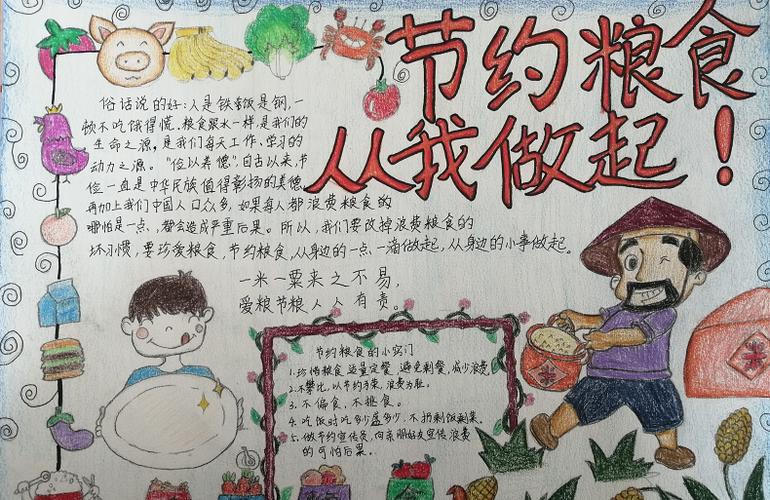 节约粮食
从我做起!
俗话说的好:人是铁饭是钢,一
顿不吃饿得慌。粮食跟水一样是我们的
生命之源。是我们每天工作、学习的
动力之源。“俭以养德”自古以来,节
俭一直是中华民族值得彰扬的美德
再加上我们中国人口众多,如果每人都浪费粮食的
哪怕是一点,都会造成严重后果。所以,我们要改掉浪费粮食的
坏习惯,要珍爱粮食,节约粮食,从身边的一点一滴做起,从身边的小事做起。
一米一粟来之不易,
爱粮节粮人人有责。
节约粮食的小窍门
1.珍惜粮食 适量定餐 避免剩餐,减少浪费
2.不攀比,以节约为荣,浪费为耻。
3.不偏食,不挑食。
4.吃饭时吃多少盛多少,不扔剩饭剩菜。
5.做节约宣传员,向亲朋好友宣传浪费
的可怕后果。